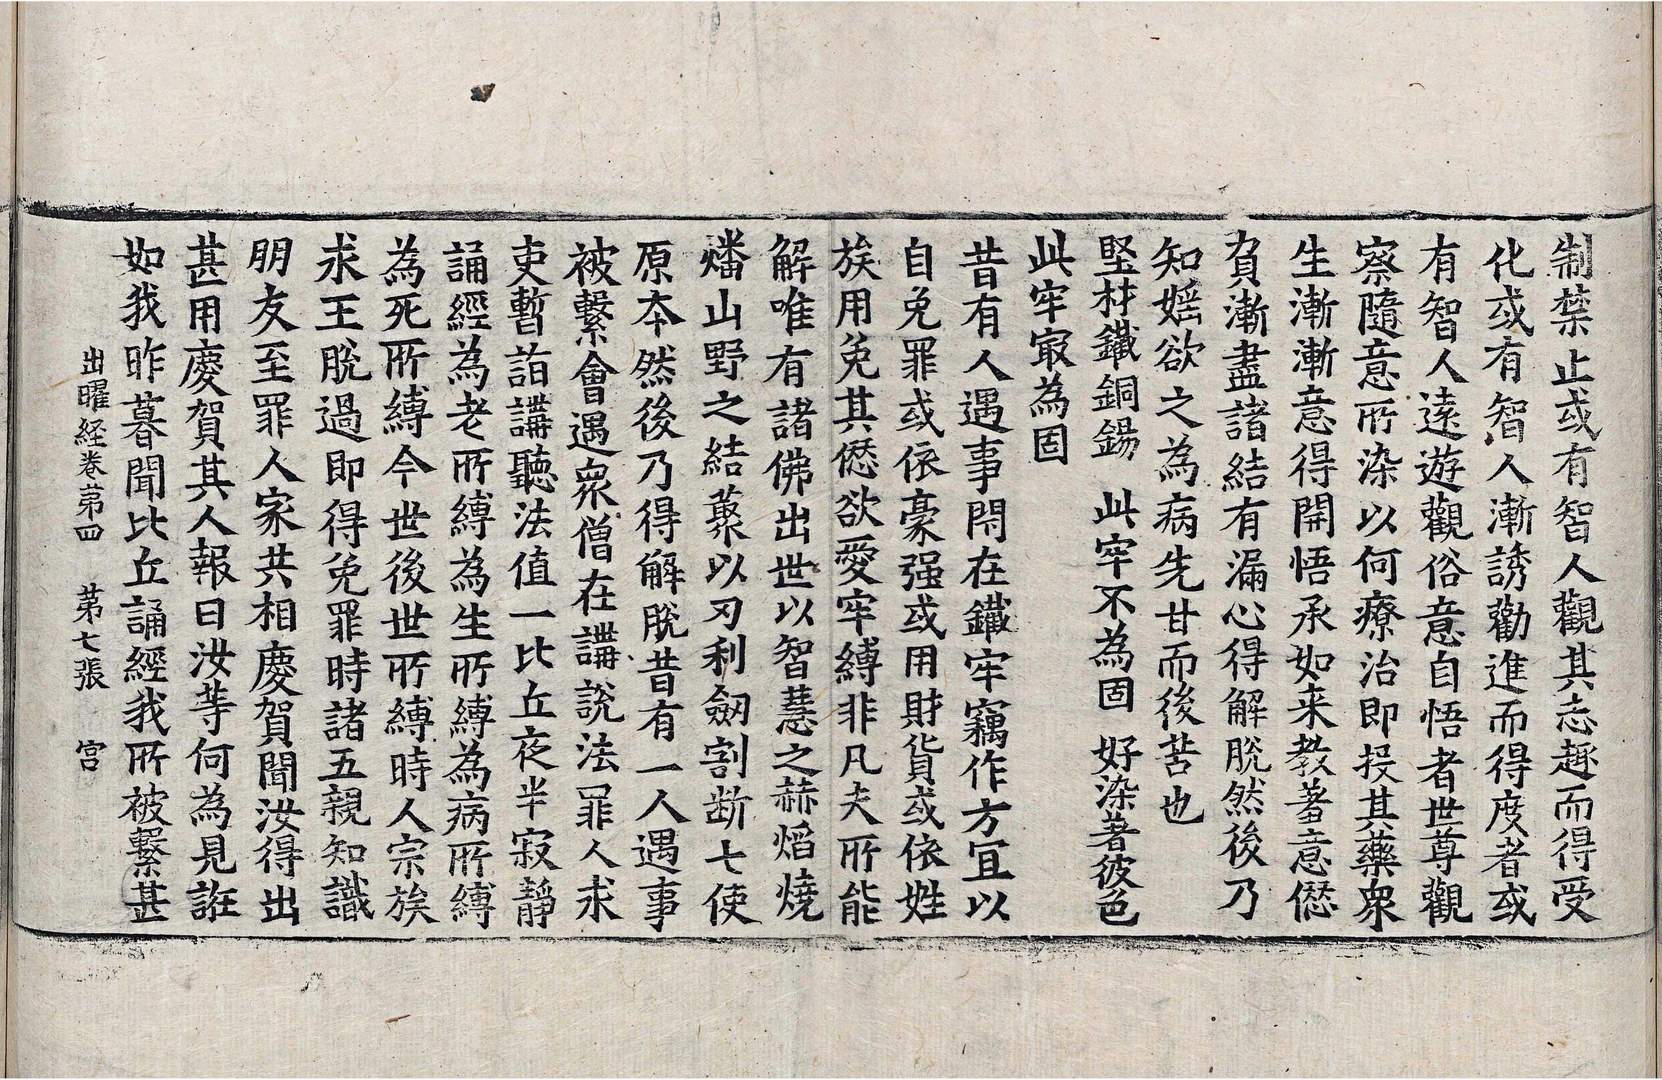 制禁止或有智人觀其志趣而得受
化或有智人漸誘勸進而得度者或
有智人遠遊觀俗意自悟者世尊觀
察隨意所染以何療治即授其藥衆
生漸漸意得開悟承如来教蓄意僽
負漸盡諸結有漏心得解脫然後乃
知婬欲之為病先甘而後苦也
堅材鐵銅錫　此牢不為固　好染著彼色
此牢寂為固
昔有人遇事閇在鐵牢牢竊作方冝以
自免罪或依豪强或用財貨或依姓
族用免其僽欲愛牢縛非凡夫所能
解唯有諸佛出世以智慧之赫熖燒
燔山野之結藂以刃利劒割断七使
原本然後乃得解脫昔有一人遇事
被繫會遇衆僧在講說法罪人求
吏暫詣講聽法值一比丘夜半寂靜
誦經為老所縛為生所縛為病所縛
為死所縛今世後世所縛時人宗族
求王脫過即得免罪時諸五親知識
朋友至罪人家共相慶賀聞汝得出
甚用慶賀其人報曰汝等何為見誑
如我昨暮聞比丘誦經我所被繫甚
出曜経卷苐四　苐七張　宫